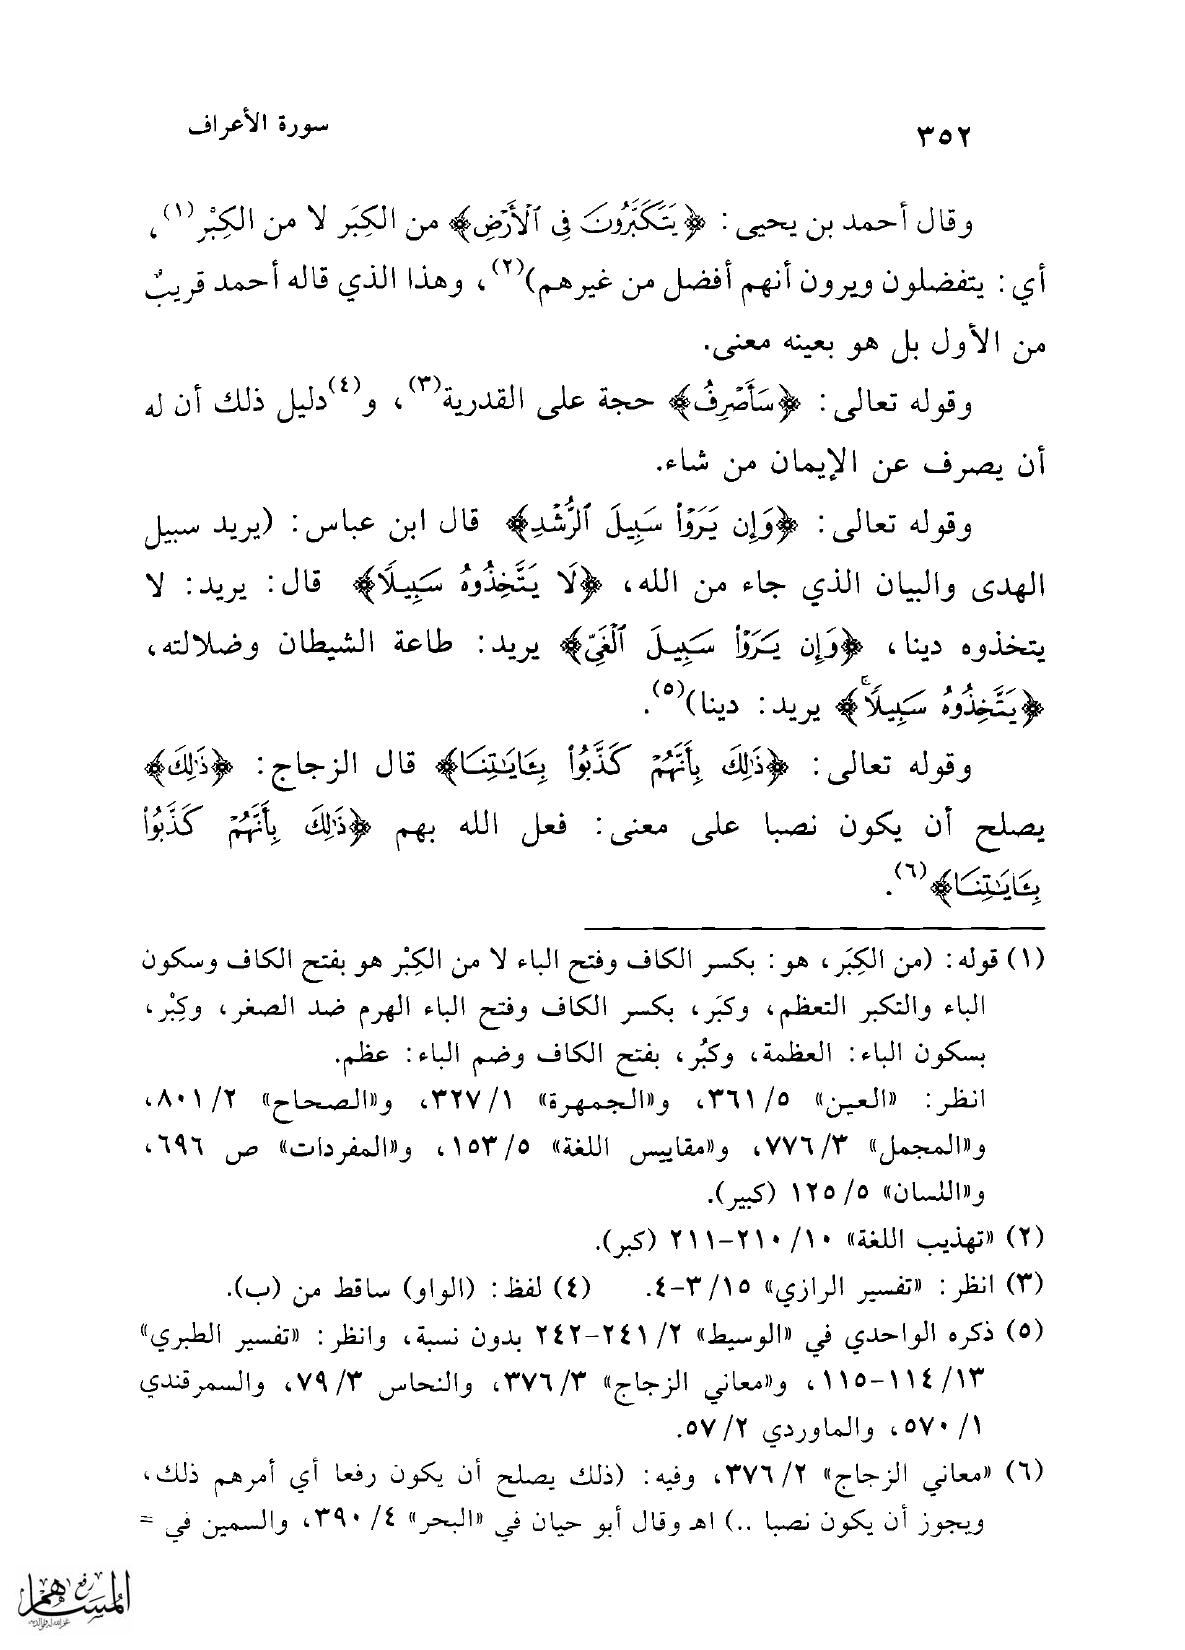 ٣٥٢
سورة الأعراف
وقال أحمد بن يحيى: ﴿يَتَكَبَّرُونَ فِي ٱلْأَرْضِ﴾ من الكِبَر لا من الكِبْر(١)،
أي: يتفضلون ويرون أنهم أفضل من غيرهم)(٢)، وهذا الذي قاله أحمد قريبٌ
من الأول بل هو بعينه معنى.
وقوله تعالى: ﴿سَأَصْرِفُ﴾ حجة على القدرية(٣)، و(٤)دليل ذلك أن له
أن يصرف عن الإيمان من شاء.
وقوله تعالى: ﴿وَإِن يَرَوْا۟ سَبِيلَ ٱلرُّشْدِ﴾ قال ابن عباس: (يريد سبيل
الهدى والبيان الذي جاء من الله، ﴿لَا يَتَّخِذُوهُ سَبِيلًا﴾ قال: يريد: لا
يتخذوه دينا، ﴿وَإِن يَرَوْا۟ سَبِيلَ ٱلْغَيِّ﴾ يريد: طاعة الشيطان وضلالته،
﴿يَتَّخِذُوهُ سَبِيلًا ۚ﴾ يريد: دينا)(٥).
وقوله تعالى: ﴿ذَٰلِكَ بِأَنَّهُمْ كَذَّبُوا۟ بِـَٔايَـٰتِنَا﴾ قال الزجاج: ﴿ذَٰلِكَ﴾
يصلح أن يكون نصبا على معنى: فعل الله بهم ﴿ذَٰلِكَ بِأَنَّهُمْ كَذَّبُوا۟
بِـَٔايَـٰتِنَا﴾(٦).
(١) قوله: (من الكِبَر، هو: بكسر الكاف وفتح الباء لا من الكِبْر هو بفتح الكاف وسكون
الباء والتكبر التعظم، وكبَر، بكسر الكاف وفتح الباء الهرم ضد الصغر، وكِبْر،
بسكون الباء: العظمة، وكبُر، بفتح الكاف وضم الباء: عظم.
انظر: «العين» ٥/ ٣٦١، و«الجمهرة» ١/ ٣٢٧، و«الصحاح» ٢/ ٨٠١،
و«المجمل» ٣/ ٧٧٦، و«مقاييس اللغة» ٥/ ١٥٣، و«المفردات» ص ٦٩٦،
و«اللسان» ٥/ ١٢٥ (كبير).
(٢) «تهذيب اللغة» ١٠/ ٢١٠-٢١١ (كبر).
(٣) انظر: «تفسير الرازي» ١٥/ ٣-٤. (٤) لفظ: (الواو) ساقط من (ب).
(٥) ذكره الواحدي في «الوسيط» ٢/ ٢٤١-٢٤٢ بدون نسبة، وانظر: «تفسير الطبري»
١٣/ ١١٤-١١٥، و«معاني الزجاج» ٣/ ٣٧٦، والنحاس ٣/ ٧٩، والسمرقندي
١/ ٥٧٠، والماوردي ٢/ ٥٧.
(٦) «معاني الزجاج» ٢/ ٣٧٦، وفيه: (ذلك يصلح أن يكون رفعا أي أمرهم ذلك،
ويجوز أن يكون نصبا ..) اهـ وقال أبو حيان في «البحر» ٤/ ٣٩٠، والسمين في =
رفع
المساهم